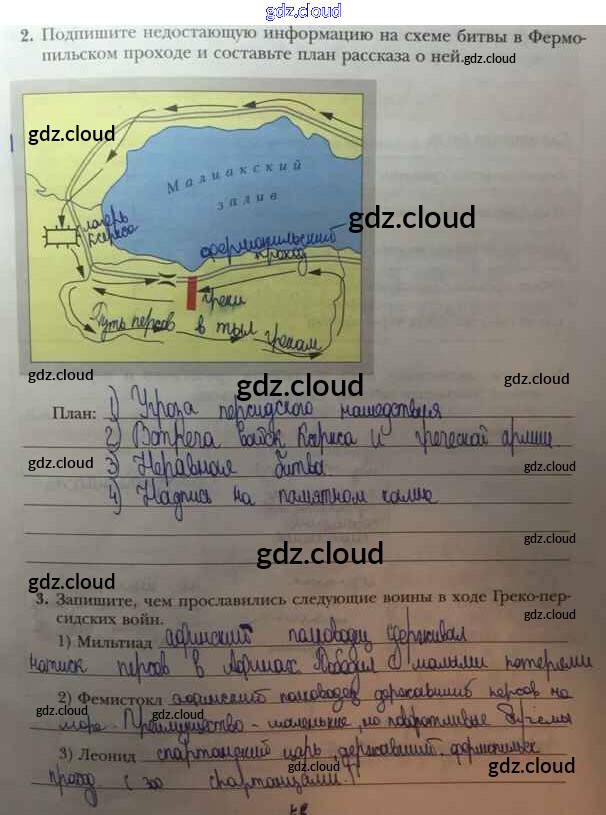 gdz.cloud
2. Подпишите недостающую информацию на схеме битвы в Фермо-
пильском проходе и составьте план рассказа о ней.
gdz.cloud
gdz.cloud
Малиакский
залив
gdz.cloud
лагерь
Ксеркса
фермопильский
проход
греки
Путь персов в тыл грекам
gdz.cloud
gdz.cloud
gdz.cloud
План: 1) Угроза персидского нашествия
2) Встреча войск Ксеркса и греческой армии
gdz.cloud
gdz.cloud
3) Неравная битва
4) Надпись на памятном камне
gdz.cloud
gdz.cloud
gdz.cloud
3. Запишите, чем прославились следующие воины в ходе Греко-пер-
сидских войн.
gdz.cloud
1) Мильтиад афинский полководец сдерживал
натиск персов в Афинах. Победил с малыми потерями
gdz.cloud
2) Фемистокл афинский полководец державший персов на
море. Преимущество - маленькие, но поворотливые
gdz.cloud
gdz.cloud
3) Леонид спартанский царь державший фермопильск
проход с 300 спартанцами.
gdz.cloud
gdz.cloud